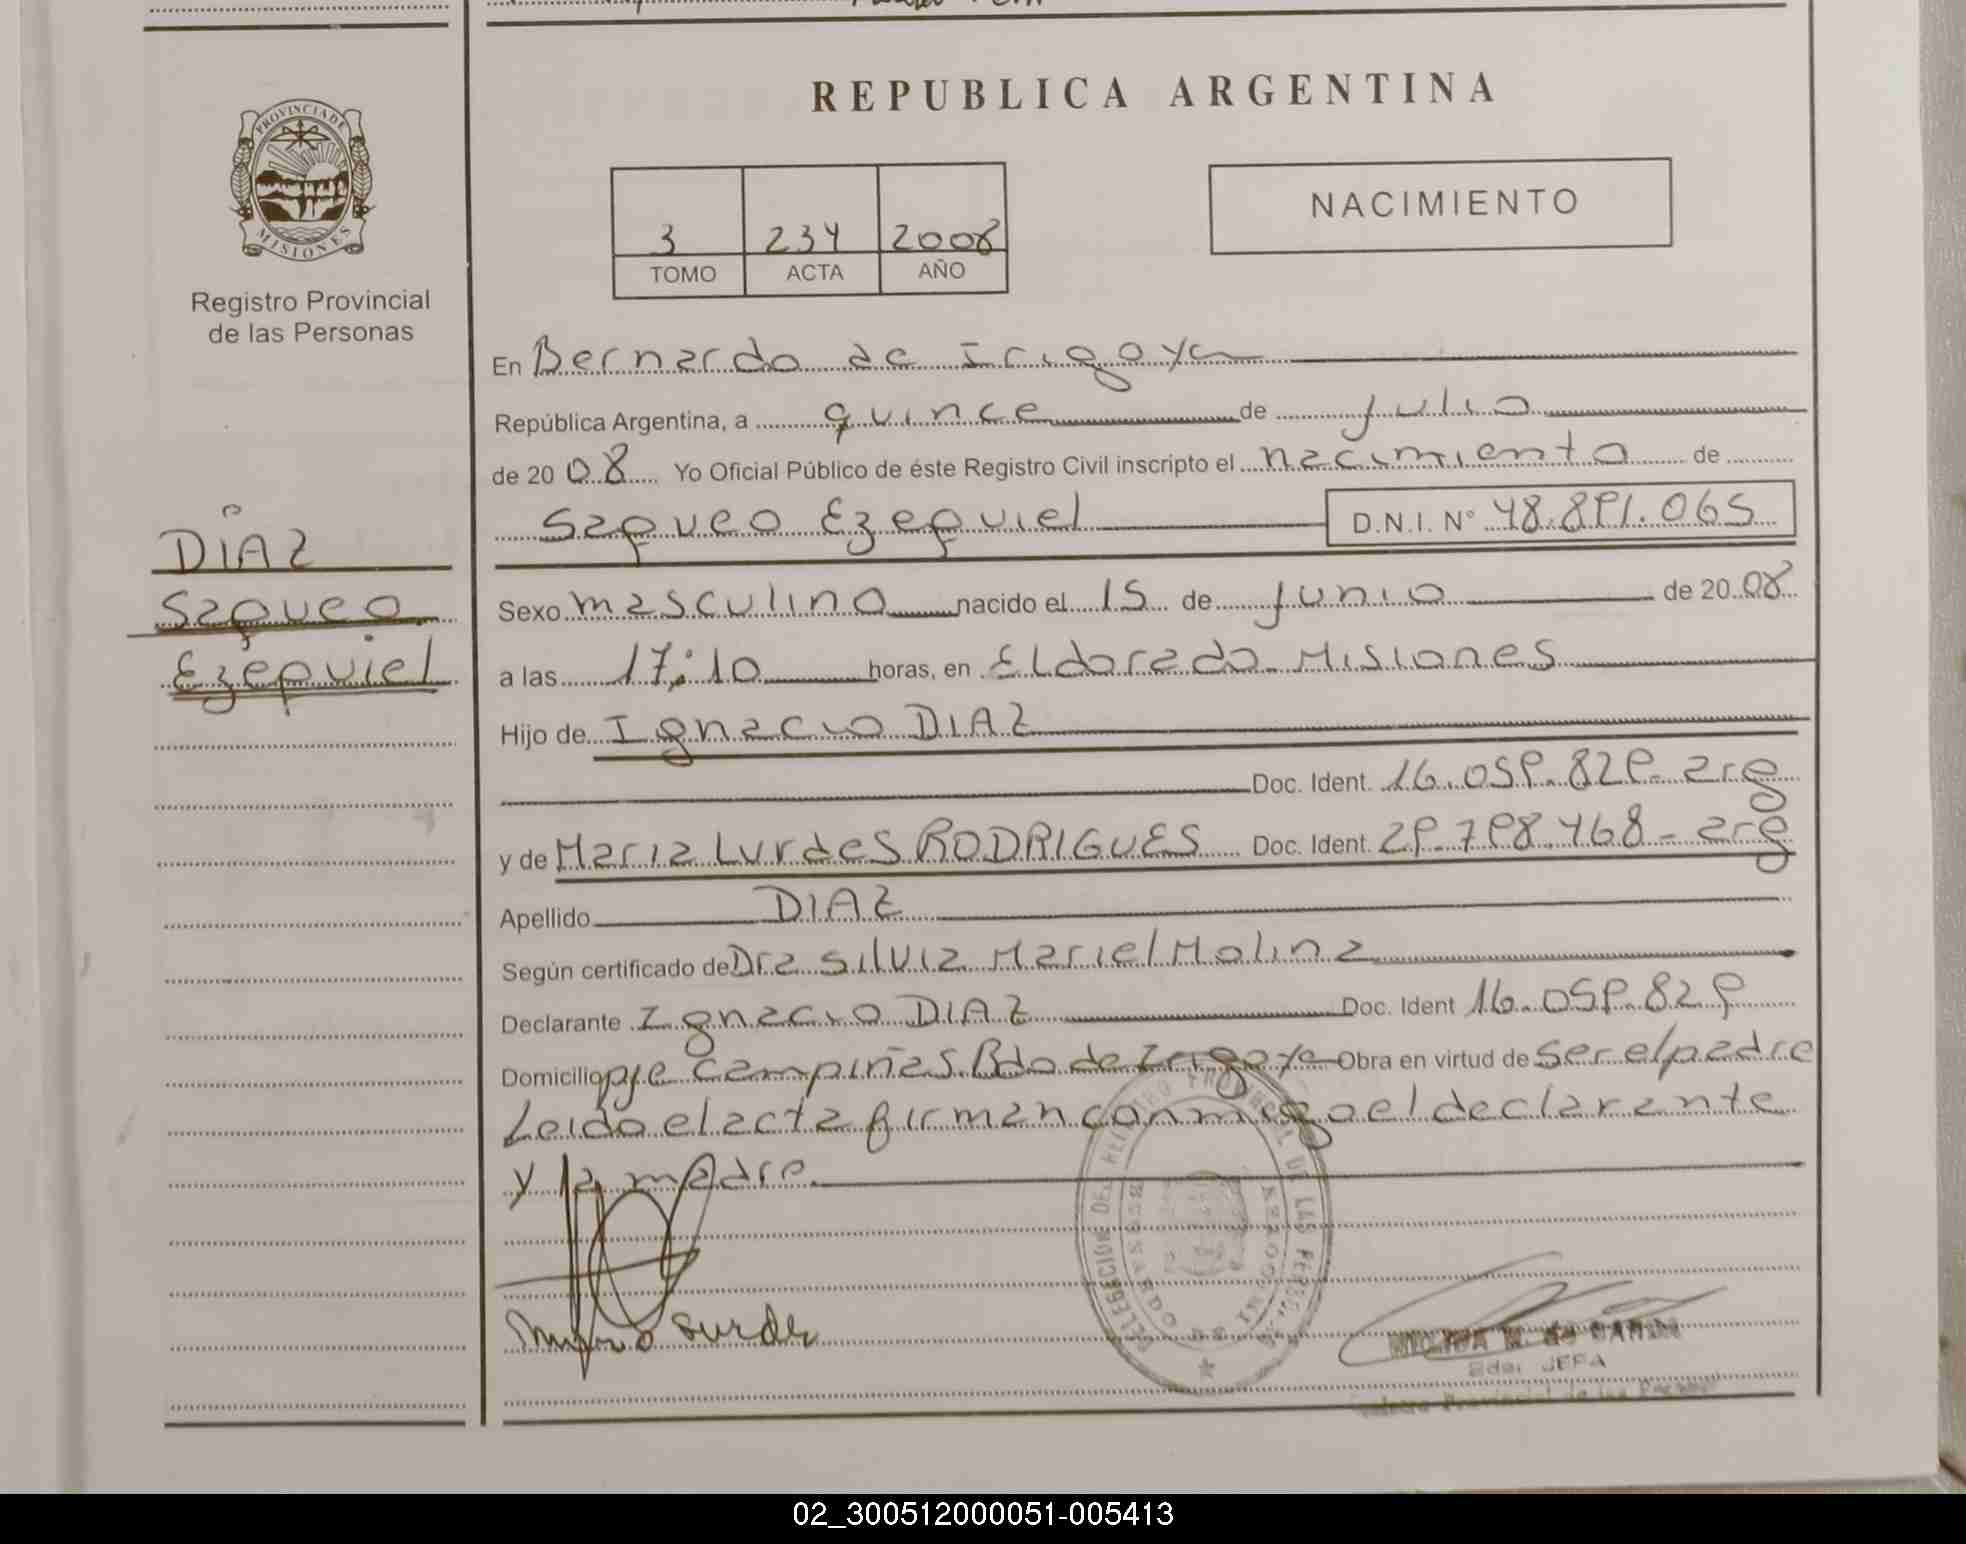 PROVINCIA DE
MISIONES
Registro Provincial
de las Personas
DIAZ
Saqueo
Ezequiel
REPUBLICA ARGENTINA
3 234 2008
TOMO ACTA AÑO
NACIMIENTO
En Bernardo de Irigoyen
República Argentina, a quince de julio
de 2008 Yo Oficial Público de éste Registro Civil inscripto el nacimiento de
Saqueo Ezequiel D.N.I. Nº 48.891.065
Sexo masculino nacido el 15 de junio de 2008
a las 17:10 horas, en Eldorado Misiones
Hijo de Ignacio DIAZ
Doc. Ident. 16.059.829 - arg
y de Maria Lurdes RODRIGUES Doc. Ident. 29.798.468 - arg
Apellido DIAZ
Según certificado de Dra Silvia Mariel Molina
Declarante Ignacio DIAZ Doc. Ident 16.059.829
Domicilio pje Campiñas Bdo de Irigoye Obra en virtud de ser el padre
Leida el acta firman conmigo el declarante
y la madre.
Bda. JEFA
Provincial de las
02_300512000051-005413